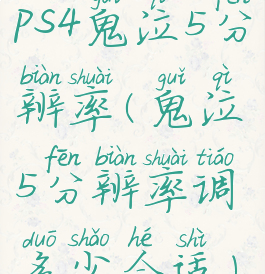 PS4鬼泣5分
biàn shuài guǐ qì
辨率(鬼泣
fēn biàn shuài tiáo
5分辨率调
duō shǎo hé shì
多少合适)